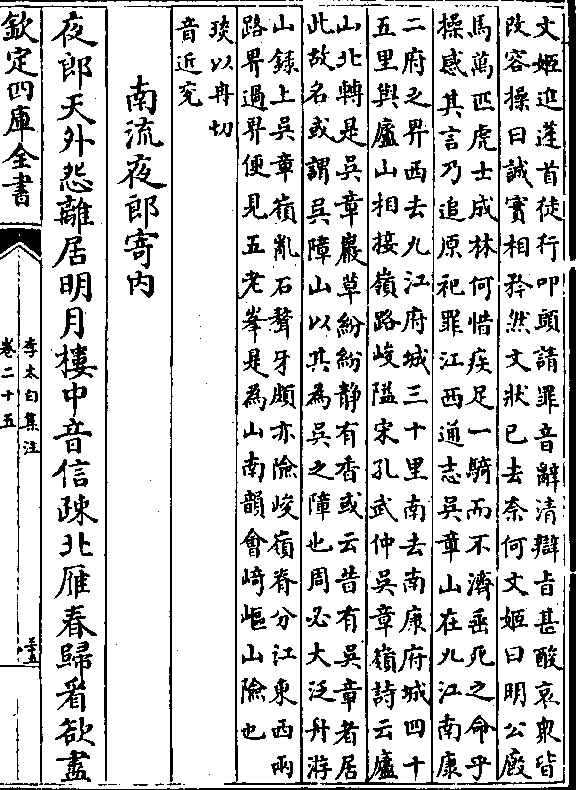 文姬進蓬首徒行叩頭請罪音辭清辯旨甚酸哀衆皆
改容操曰誠實相矜然文狀已去奈何文姬曰明公廄
馬萬匹虎士成林何惜疾足一騎而不濟垂死之命乎
操感其言乃追原祀罪江西通志吳章山在九江南康
二府之界西去九江府城三十里南去南康府城四十
五里與廬山相接嶺路峻隘宋孔武仲吳章嶺詩云廬
山北轉是吳章巖草紛紛静有香或云昔有吳章者居
此故名或謂吳障山以其為吳之障也周必大泛舟游
山録上吳章嶺亂石聱牙頗亦險峻嶺脊分江東西兩
路界過界便見五老峯是為山南韻會崎嶇山險也
琰以冉切
音近兖
南流夜郎寄内
夜郎天外怨離居明月樓中音信疎北雁春歸看欲盡
欽定四庫全書
李太白集注
卷二十五